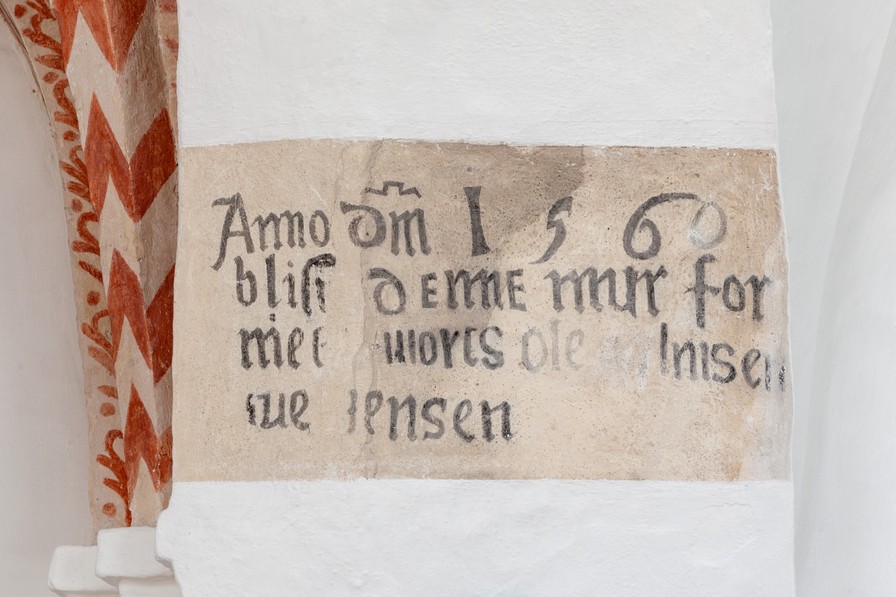 Anno dm̄ 1560
bliff denne mur for
met worts ole nisen
iensen